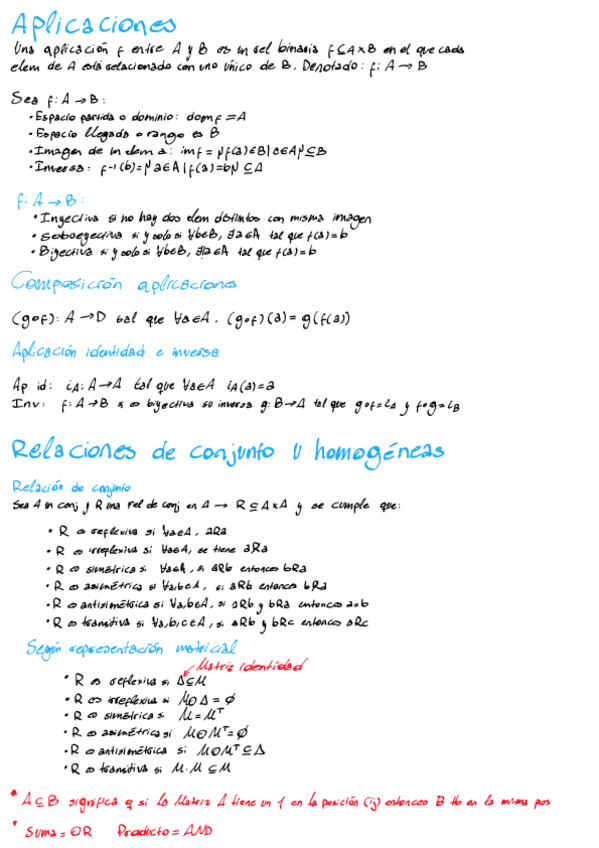 Aplicaciones
Una aplicación f entre A y B es un rel binaria f⊆A×B en el que cada
elem de A está relacionado con uno único de B. Denotado: f: A → B
Sea f: A → B:
• Espacio partida o dominio: dom f = A
• Espacio llegada o rango es B
• Imagen de un elem a: im f = {f(a)∈B | a∈A} ⊆ B
• Inversa: f⁻¹(b) = {a∈A | f(a)=b} ⊆ A
f: A → B:
• Inyectiva si no hay dos elem distintos con misma imagen
• Sobreyectiva si y solo si ∀b∈B, ∃a∈A tal que f(a)=b
• Biyectiva si y solo si ∀b∈B, ∃!a∈A tal que f(a)=b
Composición aplicaciones
(g∘f): A → D tal que ∀a∈A. (g∘f)(a) = g(f(a))
Aplicación identidad e inversa
Ap id: iA: A→A tal que ∀a∈A iA(a)=a
Inv: f: A→B si es biyectiva su inversa g: B→A tal que g∘f=iA y f∘g=iB
Relaciones de conjunto u homogéneas
Relación de conjunto
Sea A un conj y R una rel de conj en A → R ⊆ A×A y se cumple que:
• R es reflexiva si ∀a∈A, aRa
• R es irreflexiva si ∀a∈A, se tiene aR̸a
• R es simétrica si ∀a∈A, si aRb entonces bRa
• R es asimétrica si ∀a,b∈A, si aRb entonces bR̸a
• R es antisimétrica si ∀a,b∈A, si aRb y bRa entonces a=b
• R es transitiva si ∀a,b,c∈A, si aRb y bRc entonces aRc
Según representación matricial
Matriz identidad
• R es reflexiva si Δ⊆M
• R es irreflexiva si M⊙Δ = ∅
• R es simétrica si M = Mᵀ
• R es asimétrica si M⊙Mᵀ = ∅
• R es antisimétrica si M⊙Mᵀ ⊆ Δ
• R es transitiva si M·M ⊆ M
* A⊆B significa q si la Matriz A tiene un 1 en la posición (ij) entonces B tb en la misma pos
* Suma = OR Producto = AND